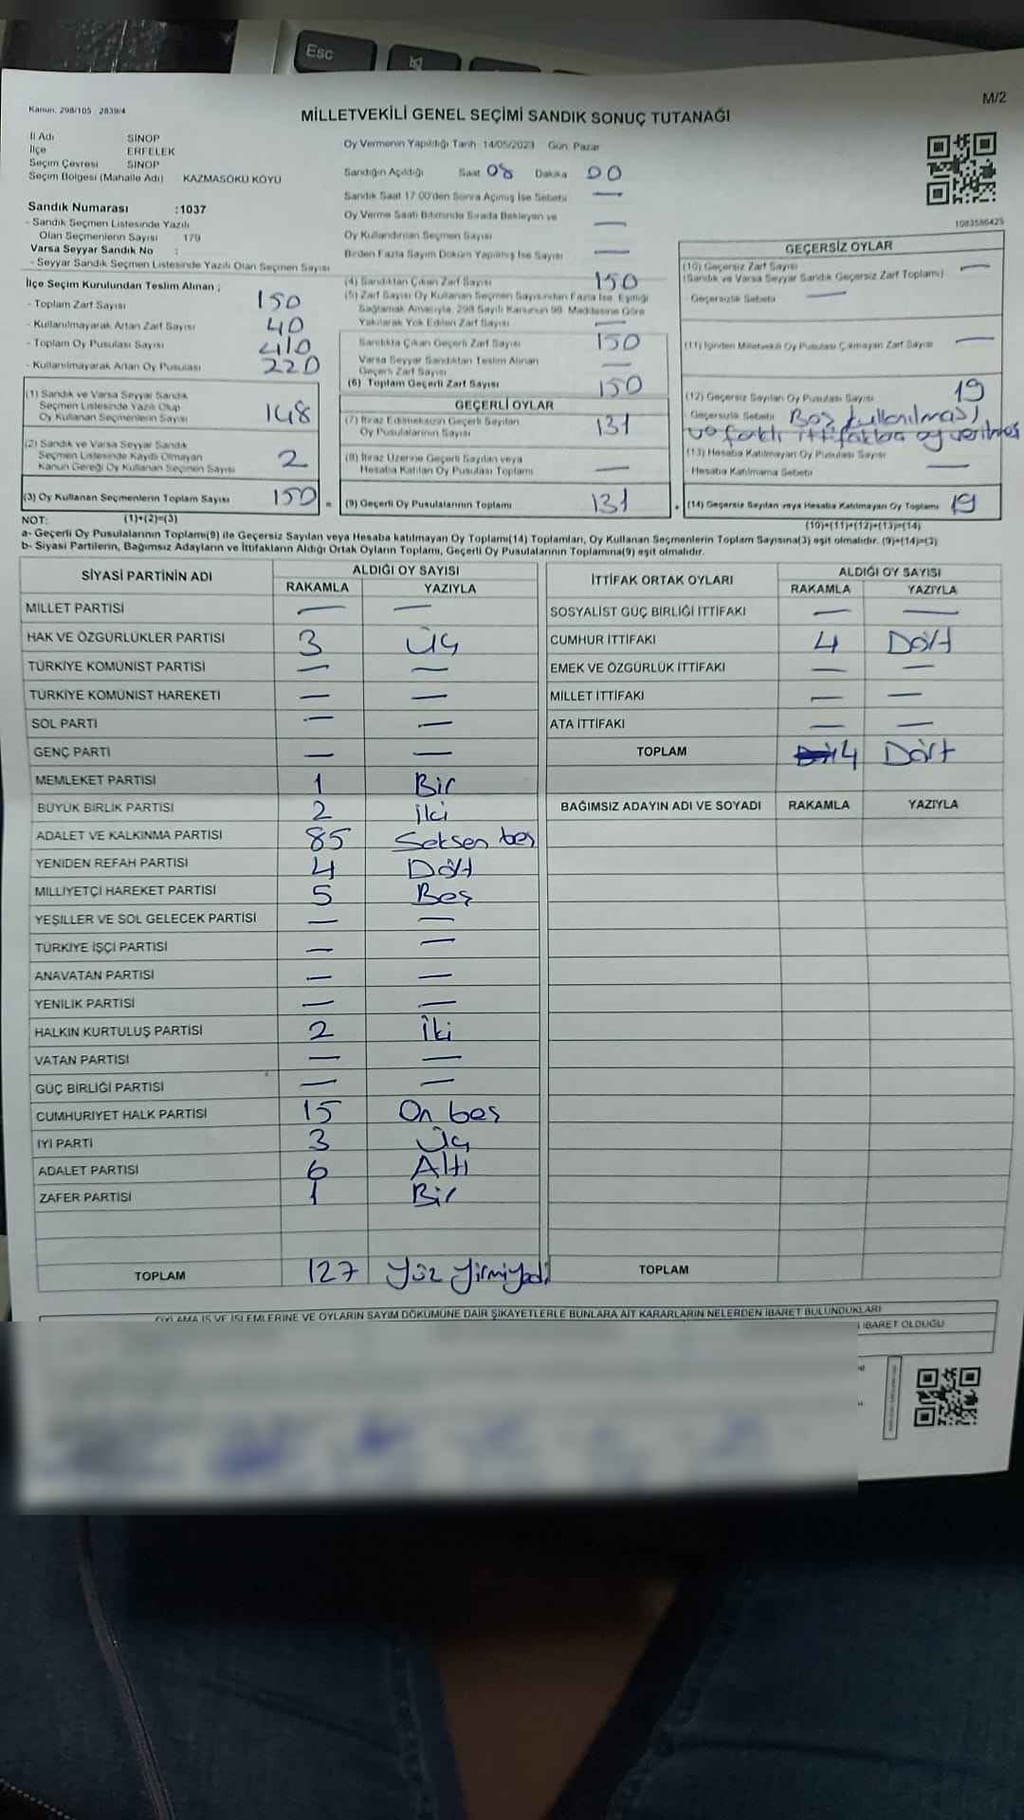 Esc
M/2
Kanun: 298/105 2839/4
MİLLETVEKİLİ GENEL SEÇİMİ SANDIK SONUÇ TUTANAĞI
İl Adı SİNOP
İlçe ERFELEK
Seçim Çevresi SİNOP
Seçim Bölgesi (Mahalle Adı) KAZMASOKU KÖYÜ
Sandık Numarası :1037
- Sandık Seçmen Listesinde Yazılı
Olan Seçmenlerin Sayısı 179
Varsa Seyyar Sandık No :
- Seyyar Sandık Seçmen Listesinde Yazılı Olan Seçmen Sayısı
Oy Vermenin Yapıldığı Tarih 14/05/2023 Gün: Pazar
Sandığın Açıldığı Saat 08 Dakika 00
Sandık Saat 17.00'den Sonra Açılmış İse Sebebi —
Oy Verme Saati Bitiminde Sırada Bekleyen ve
Oy Kullandırılan Seçmen Sayısı —
Birden Fazla Sayım Döküm Yapılmış İse Sayısı —
1083586425
İlçe Seçim Kurulundan Teslim Alınan ;
- Toplam Zarf Sayısı 150
- Kullanılmayarak Artan Zarf Sayısı 40
- Toplam Oy Pusulası Sayısı 410
- Kullanılmayarak Artan Oy Pusulası 220
(1) Sandık ve Varsa Seyyar Sandık
Seçmen Listesinde Yazılı Olup
Oy Kullanan Seçmenlerin Sayısı 148
(2) Sandık ve Varsa Seyyar Sandık
Seçmen Listesinde Kayıtlı Olmayan
Kanun Gereği Oy Kullanan Seçmen Sayısı 2
(3) Oy Kullanan Seçmenlerin Toplam Sayısı 150 =
(4) Sandıktan Çıkan Zarf Sayısı 150
(5) Zarf Sayısı Oy Kullanan Seçmen Sayısından Fazla İse, Eşitliği
Sağlamak Amacıyla, 298 Sayılı Kanunun 98. Maddesine Göre
Yakılarak Yok Edilen Zarf Sayısı —
Sandıkta Çıkan Geçerli Zarf Sayısı 150
Varsa Seyyar Sandıktan Teslim Alınan
Geçerli Zarf Sayısı —
(6) Toplam Geçerli Zarf Sayısı 150
GEÇERLİ OYLAR
(7) İtiraz Edilmeksizin Geçerli Sayılan
Oy Pusulalarının Sayısı 131
(8) İtiraz Üzerine Geçerli Sayılan veya
Hesaba Katılan Oy Pusulası Toplamı —
(9) Geçerli Oy Pusulalarının Toplamı 131 +
GEÇERSİZ OYLAR
(10) Geçersiz Zarf Sayısı —
(Sandık ve Varsa Seyyar Sandık Geçersiz Zarf Toplamı)
- Geçersizlik Sebebi —
(11) İçinden Milletvekili Oy Pusulası Çıkmayan Zarf Sayısı —
(12) Geçersiz Sayılan Oy Pusulası Sayısı 19
- Geçersizlik Sebebi Boş kullanılması
ve farklı ittifaklara oy verilmesi
(13) Hesaba Katılmayan Oy Pusulası Sayısı
- Hesaba Katılmama Sebebi —
(14) Geçersiz Sayılan veya Hesaba Katılmayan Oy Toplamı 19
NOT: (1)+(2)=(3) (10)+(11)+(12)+(13)=(14)
a- Geçerli Oy Pusulalarının Toplamı(9) ile Geçersiz Sayılan veya Hesaba katılmayan Oy Toplamı(14) Toplamları, Oy Kullanan Seçmenlerin Toplam Sayısına(3) eşit olmalıdır. (9)+(14)=(3)
b- Siyasi Partilerin, Bağımsız Adayların ve İttifakların Aldığı Ortak Oyların Toplamı, Geçerli Oy Pusulalarının Toplamına(9) eşit olmalıdır.
SİYASİ PARTİNİN ADI ALDIĞI OY SAYISI
RAKAMLA YAZIYLA
MİLLET PARTİSİ — —
HAK VE ÖZGÜRLÜKLER PARTİSİ 3 Üç
TÜRKİYE KOMÜNİST PARTİSİ — —
TÜRKİYE KOMÜNİST HAREKETİ — —
SOL PARTİ — —
GENÇ PARTİ — —
MEMLEKET PARTİSİ 1 Bir
BÜYÜK BİRLİK PARTİSİ 2 iki
ADALET VE KALKINMA PARTİSİ 85 Seksen beş
YENİDEN REFAH PARTİSİ 4 Dört
MİLLİYETÇİ HAREKET PARTİSİ 5 Beş
YEŞİLLER VE SOL GELECEK PARTİSİ — —
TÜRKİYE İŞÇİ PARTİSİ — —
ANAVATAN PARTİSİ — —
YENİLİK PARTİSİ — —
HALKIN KURTULUŞ PARTİSİ 2 İki
VATAN PARTİSİ — —
GÜÇ BİRLİĞİ PARTİSİ — —
CUMHURİYET HALK PARTİSİ 15 On beş
İYİ PARTİ 3 Üç
ADALET PARTİSİ 6 Altı
ZAFER PARTİSİ 1 Bir
TOPLAM 127 Yüz yirmi yedi
İTTİFAK ORTAK OYLARI ALDIĞI OY SAYISI
RAKAMLA YAZIYLA
SOSYALİST GÜÇ BİRLİĞİ İTTİFAKI — —
CUMHUR İTTİFAKI 4 Dört
EMEK VE ÖZGÜRLÜK İTTİFAKI — —
MİLLET İTTİFAKI — —
ATA İTTİFAKI — —
TOPLAM 4 Dört
BAĞIMSIZ ADAYIN ADI VE SOYADI RAKAMLA YAZIYLA
TOPLAM
OYLAMA İŞ VE İŞLEMLERİNE VE OYLARIN SAYIM DÖKÜMÜNE DAİR ŞİKAYETLERLE BUNLARA AİT KARARLARIN NELERDEN İBARET BULUNDUKLARI
İBARET OLDUĞU